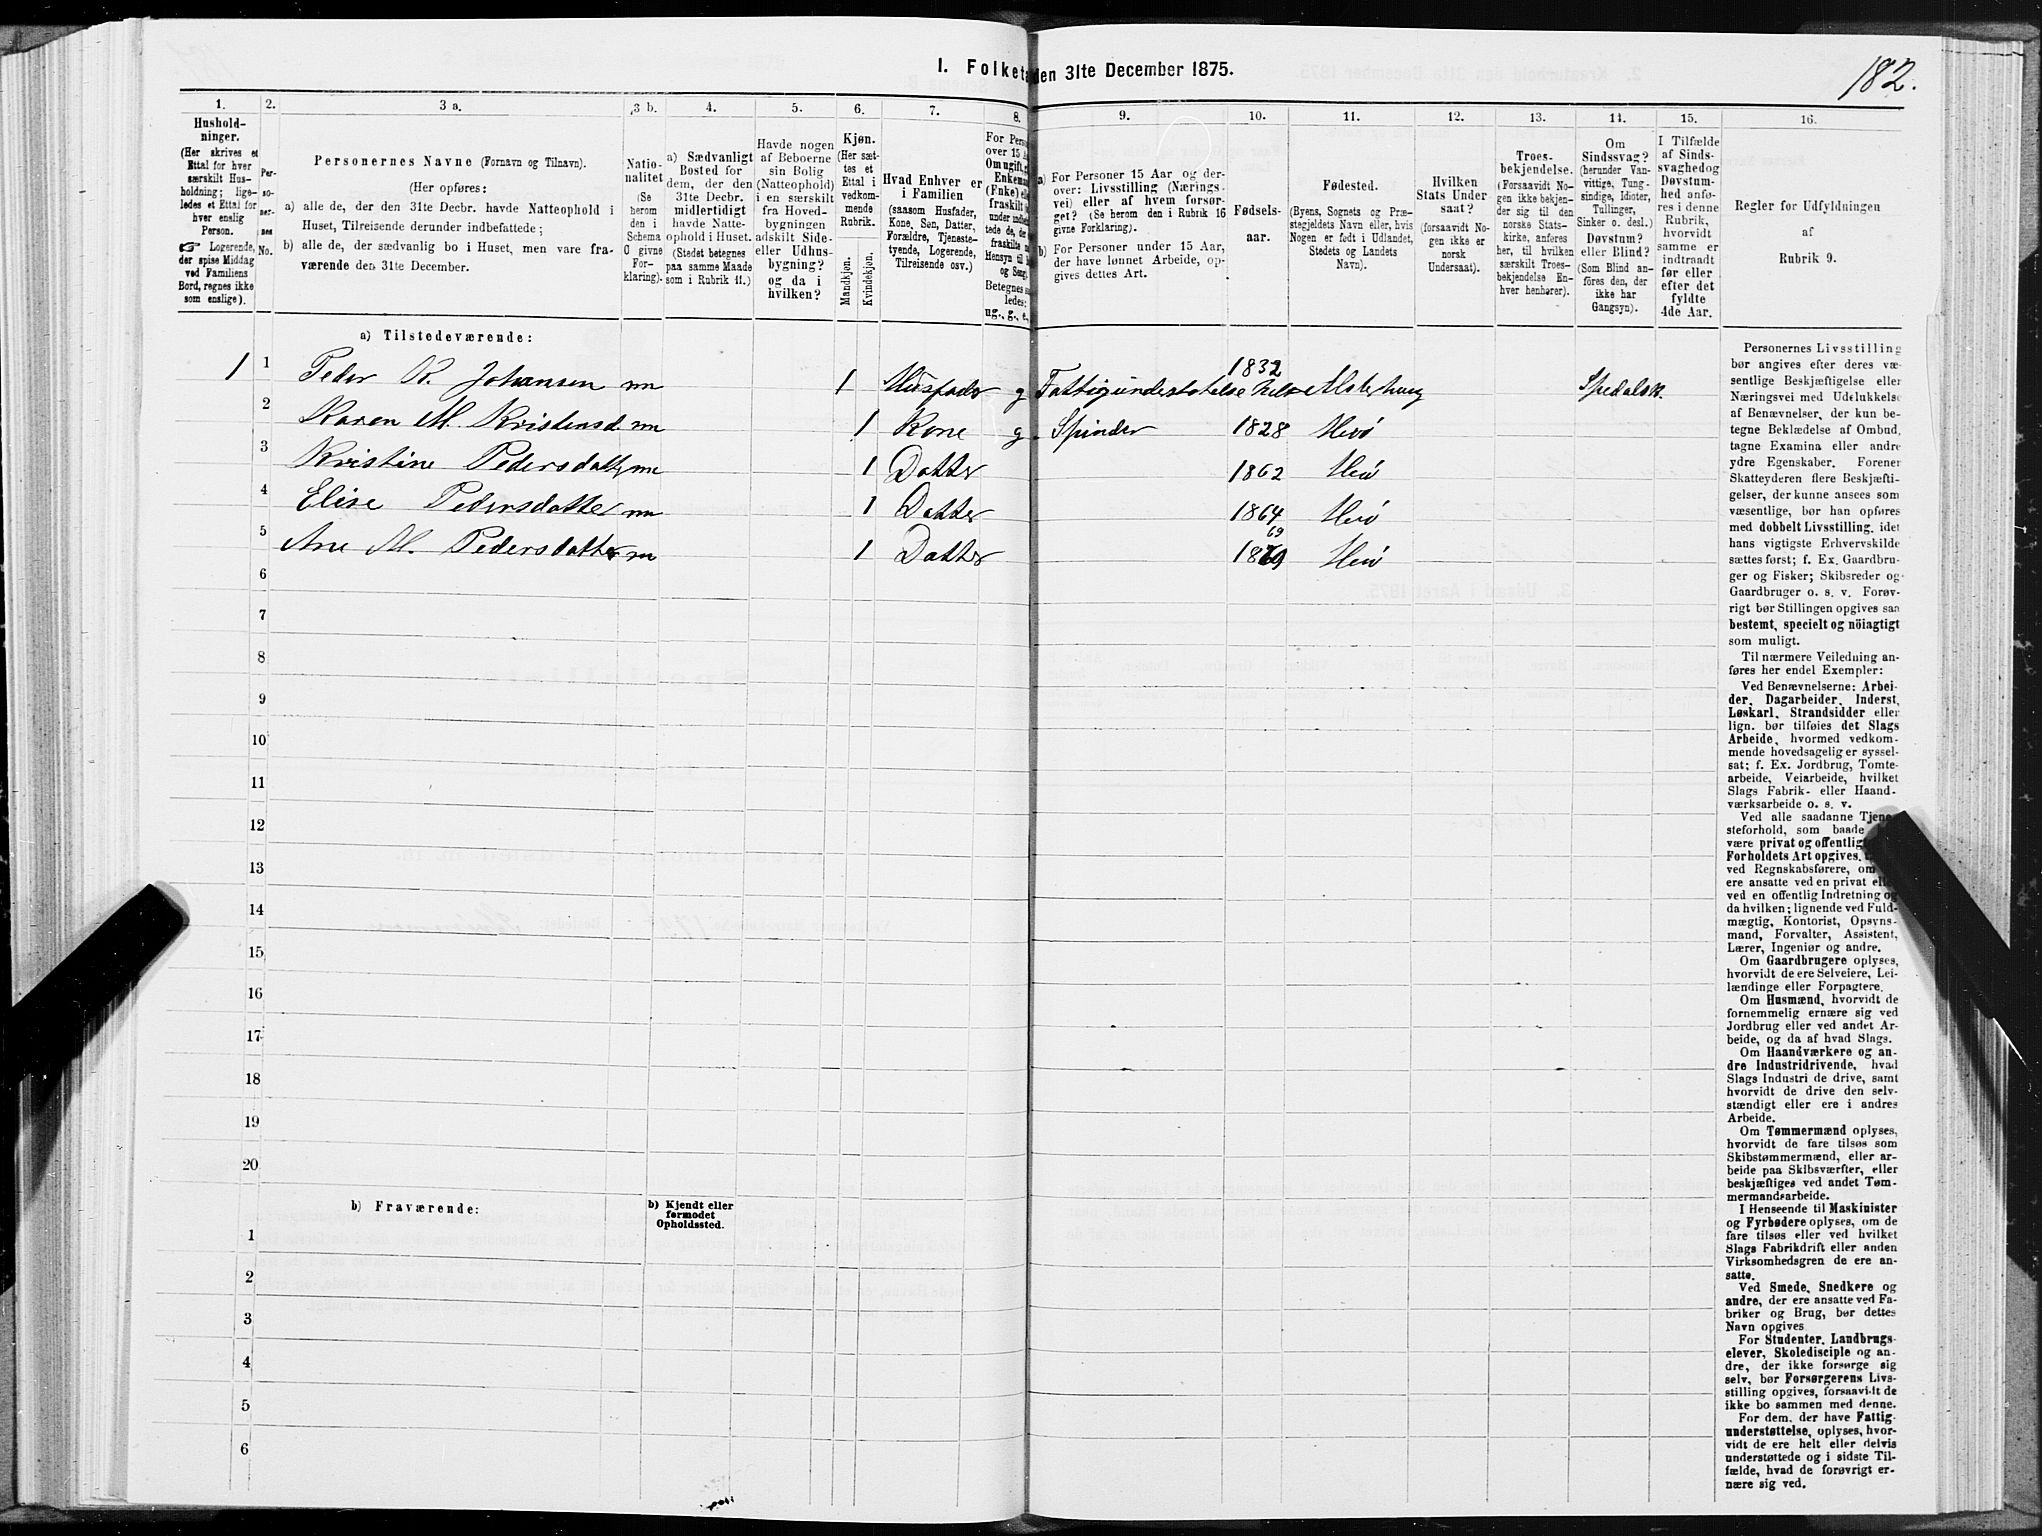 182.
I. Folketa den 31te December 1875.
1. 2. 3 a. 3 b. 4. 5. 6. 7. 8. 9. 10. 11. 12. 13. 14. 15. 16.
Hushold-
ninger.
(Her skrives et
Ettal for hver
særskilt Hus-
holdning; lige-
ledes et Ettal for
hver enslig
Person.
☞ Logerende,
der spise Middag
ved Familiens
Bord, regnes ikke
som enslige).
Per-
so-
ner-
nes
No.
Personernes Navne (Fornavn og Tilnavn).
(Her opføres:
a) alle de, der den 31te Decbr. havde Natteophold i
Huset, Tilreisende derunder indbefattede;
b) alle de, der sædvanlig bo i Huset, men vare fra-
værende den 31te December.
Natio-
nalitet
(Se
herom
den i
Schema
O givne
For-
klaring).
a) Sædvanligt
Bosted for
dem, der den
31te Decbr.
midlertidigt
havde Natte-
ophold i Huset.
(Stedet betegnes
paa samme Maade
som i Rubrik 11.)
Havde nogen
af Beboerne
sin Bolig
(Natteophold)
i en særskilt
fra Hoved-
bygningen
adskilt Side-
eller Udhus-
bygning?
og da i
hvilken?
Kjøn.
(Her sæt-
tes et
Ettal i
vedkom-
mende
Rubrik.
Mandkjøn.
Kvindekjøn.
Hvad Enhver er
i Familien
(saasom Husfader,
Kone, Søn, Datter,
Forældre, Tjeneste-
tyende, Logerende,
Tilreisende osv.)
For Perso
over 15 A
Om ugift, g
Enkema
(Fnke) elle
fraskilt
under indbe
tede de, der
fraskilte
Hensyn til
og Seng.
Betegnes sa
ledes:
ug., g., e.,
a) For Personer 15 Aar og der-
over: Livsstilling (Nærings-
vei) eller af hvem forsør-
get? (Se herom den i Rubrik 16
givne Forklaring).
b) For Personer under 15 Aar,
der have lønnet Arbeide, op-
gives dettes Art.
Fødsels-
aar.
Fødested.
(Byens, Sognets og Præ-
stegjeldets Navn eller, hvis
Nogen er født i Udlandet,
Stedets og Landets
Navn).
Hvilken
Stats Under
saat?
(forsaavidt No-
gen ikke er
norsk
Undersaat).
Troes-
bekjendelse.
(Forsaavidt No-
gen ikke bekjen-
der sig til den
norske Stats-
kirke, anføres
her, til hvilken
særskilt Troes-
bekjendelse En-
hver henhører).
Om
Sindssvag?
(herunder Van-
vittige, Tung-
sindige, Idioter,
Tullinger,
Sinker o. desl.)
Døvstum?
eller Blind?
(Som Blind an-
føres den, der
ikke har
Gangsyn).
I Tilfælde
af Sinds-
svaghed og
Døvstum-
hed anfø-
res i denne
Rubrik,
hvorvidt
samme er
indtraadt
før eller
efter det
fyldte
4de Aar.
Regler for Udfyldningen
af
Rubrik 9.
a) Tilstedeværende:
1 1 Peder K. Johansen nn 1 Husfader g Fattigunderstøttelse helt 1832 Alstehaug Spedalsk.
2 Karen M. Kristensd. nn 1 Kone g. Spinder 1828 Herø
3 Kristine Pedersdatter nn 1 Datter 1862 Herø
4 Elise Pedersdatter nn 1 Datter 1864 Herø
5 Ane M. Pedersdatter nn 1 Datter 1869 69 Herø
6
7
8
9
10
11
12
13
14
15
16
17
18
19
20
b) Fraværende:
b) Kjendt eller
formodet
Opholdssted.
1
2
3
4
5
6
Personernes Livsstilling
bør angives efter deres væ-
sentlige Beskjæftigelse eller
Næringsvei med Udelukkelse
af Benævnelser, der kun be-
tegne Beklædelse af Ombud,
tagne Examina eller andre
ydre Egenskaber. Forener
Skatteyderen flere Beskjæfti-
gelser, der kunne ansees som
væsentlige, bør han opføres
med dobbelt Livsstilling, idet
hans vigtigste Erhvervskilde
sættes først; f. Ex. Gaardbru-
ger og Fisker; Skibsreder og
Gaardbruger o. s. v. Forøv-
rigt bør Stillingen opgives saa
bestemt, specielt og nöiagtigt
som muligt.
Til nærmere Veiledning an-
føres her endel Exempler:
Ved Benævnelserne: Arbei-
der, Dagarbeider, Inderst,
Løskarl, Strandsidder eller
lign. bør tilføies det Slags
Arbeide, hvormed vedkom-
mende hovedsagelig er syssel-
sat; f. Ex. Jordbrug, Tomte-
arbeide, Veiarbeide, hvilket
Slags Fabrik- eller Haand-
værksarbeide o. s. v.
Ved alle saadanne Tjene-
steforhold, som baade
være privat og offentlig
Forholdets Art opgives,
ved Regnskabsførere, om
ere ansatte ved en privat ell
ved en offentlig Indretning og
da hvilken; lignende ved Fuld-
mægtig, Kontorist, Opsyns-
mand, Forvalter, Assistent,
Lærer, Ingeniør og andre.
Om Gaardbrugere oplyses,
hvorvidt de ere Selveiere, Lei-
lændinge eller Forpagtere.
Om Husmænd, hvorvidt de
fornemmelig ernære sig ved
Jordbrug eller ved andet Ar-
beide, og da af hvad Slags.
Om Haandværkere og an-
dre Industridrivende, hvad
Slags Industri de drive, samt
hvorvidt de drive den selv-
stændigt eller ere i andres
Arbeide.
Om Tømmermænd oplyses,
hvorvidt de fare tilsøs som
Skibstømmermænd, eller ar-
beide paa Skibsværfter, eller
beskjæftiges ved andet Tøm-
mermandsarbeide.
I Henseende til Maskinister
og Fyrbødere oplyses, om de
fare tilsøs eller ved hvilket
Slags Fabrikdrift eller anden
Virksomhedsgren de ere an-
satte.
Ved Smede, Snedkere og
andre, der ere ansatte ved Fa-
briker og Brug, bør dettes
Navn opgives
For Studenter, Landbrugs-
elever, Skoledisciple og an-
dre, der ikke forsørge sig
selv, bør Forsørgerens Livs-
stilling opgives, forsaavidt de
ikke bo sammen med denne.
For dem, der have Fattig-
understøttelse, oplyses, hvor-
vidt de ere helt eller delvis
understøttede og i sidste Til-
fælde, hvad de forøvrigt er-
nære sig ved.